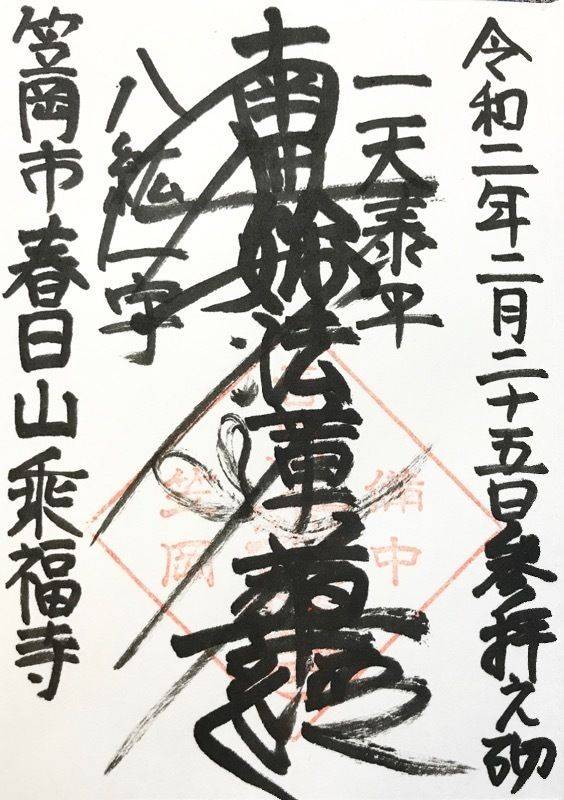 令和二年二月二十五日参拝之砌
一天泰平
南無妙法蓮華経
八紘一宇
笠岡市春日山乘福寺
備中
笠岡